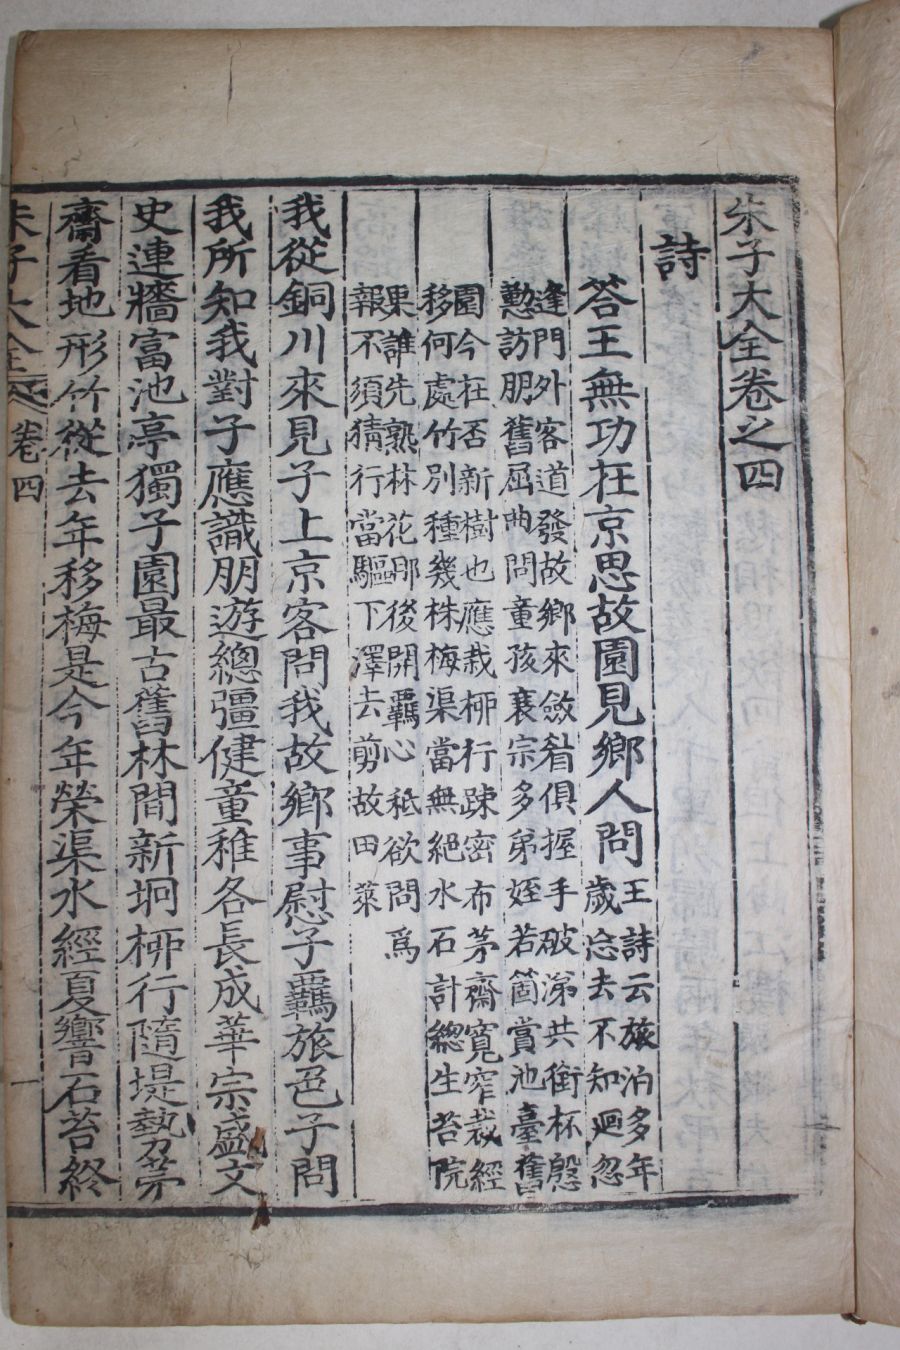 朱子大全卷之四
詩
答王無功在京思故園見鄉人問
王詩云旅泊多年
歲忩去不知廻忽
逢門外客道發故鄉來斂眉俱握手破涕共銜杯慇
懃訪朋舊屈曲問童孩衰宗多弟姪若箇賞池臺舊
園今在否新樹也應栽柳行踈密布茅齋寬窄裁經
移何處竹別種幾株梅渠當無絕水石計總生苔院
果誰先熟林花那後開羈心秪欲問爲
報不須猜行當驅下澤去剪故田萊
我從銅川來見子上京客問我故鄉事慰子羈旅色子問
我所知我對子應識朋遊總彊健童稚各長成華宗盛文
史連牆富池亭獨子園最古舊林間新坰柳行隨堤勢茅
齋看地形竹從去年移梅是今年榮渠水經夏響石苔終
朱子大全 卷四
一